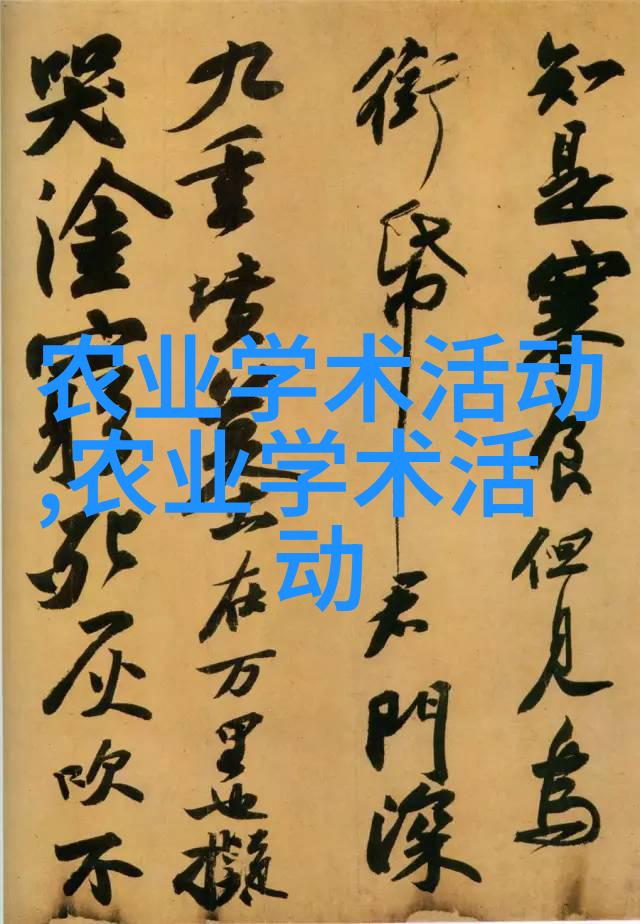 知是寒食但見烏
銜帋君門深
九重墳墓在万里也擬
哭塗窮死灰吹不
农业学术活动
,农业学术活
动